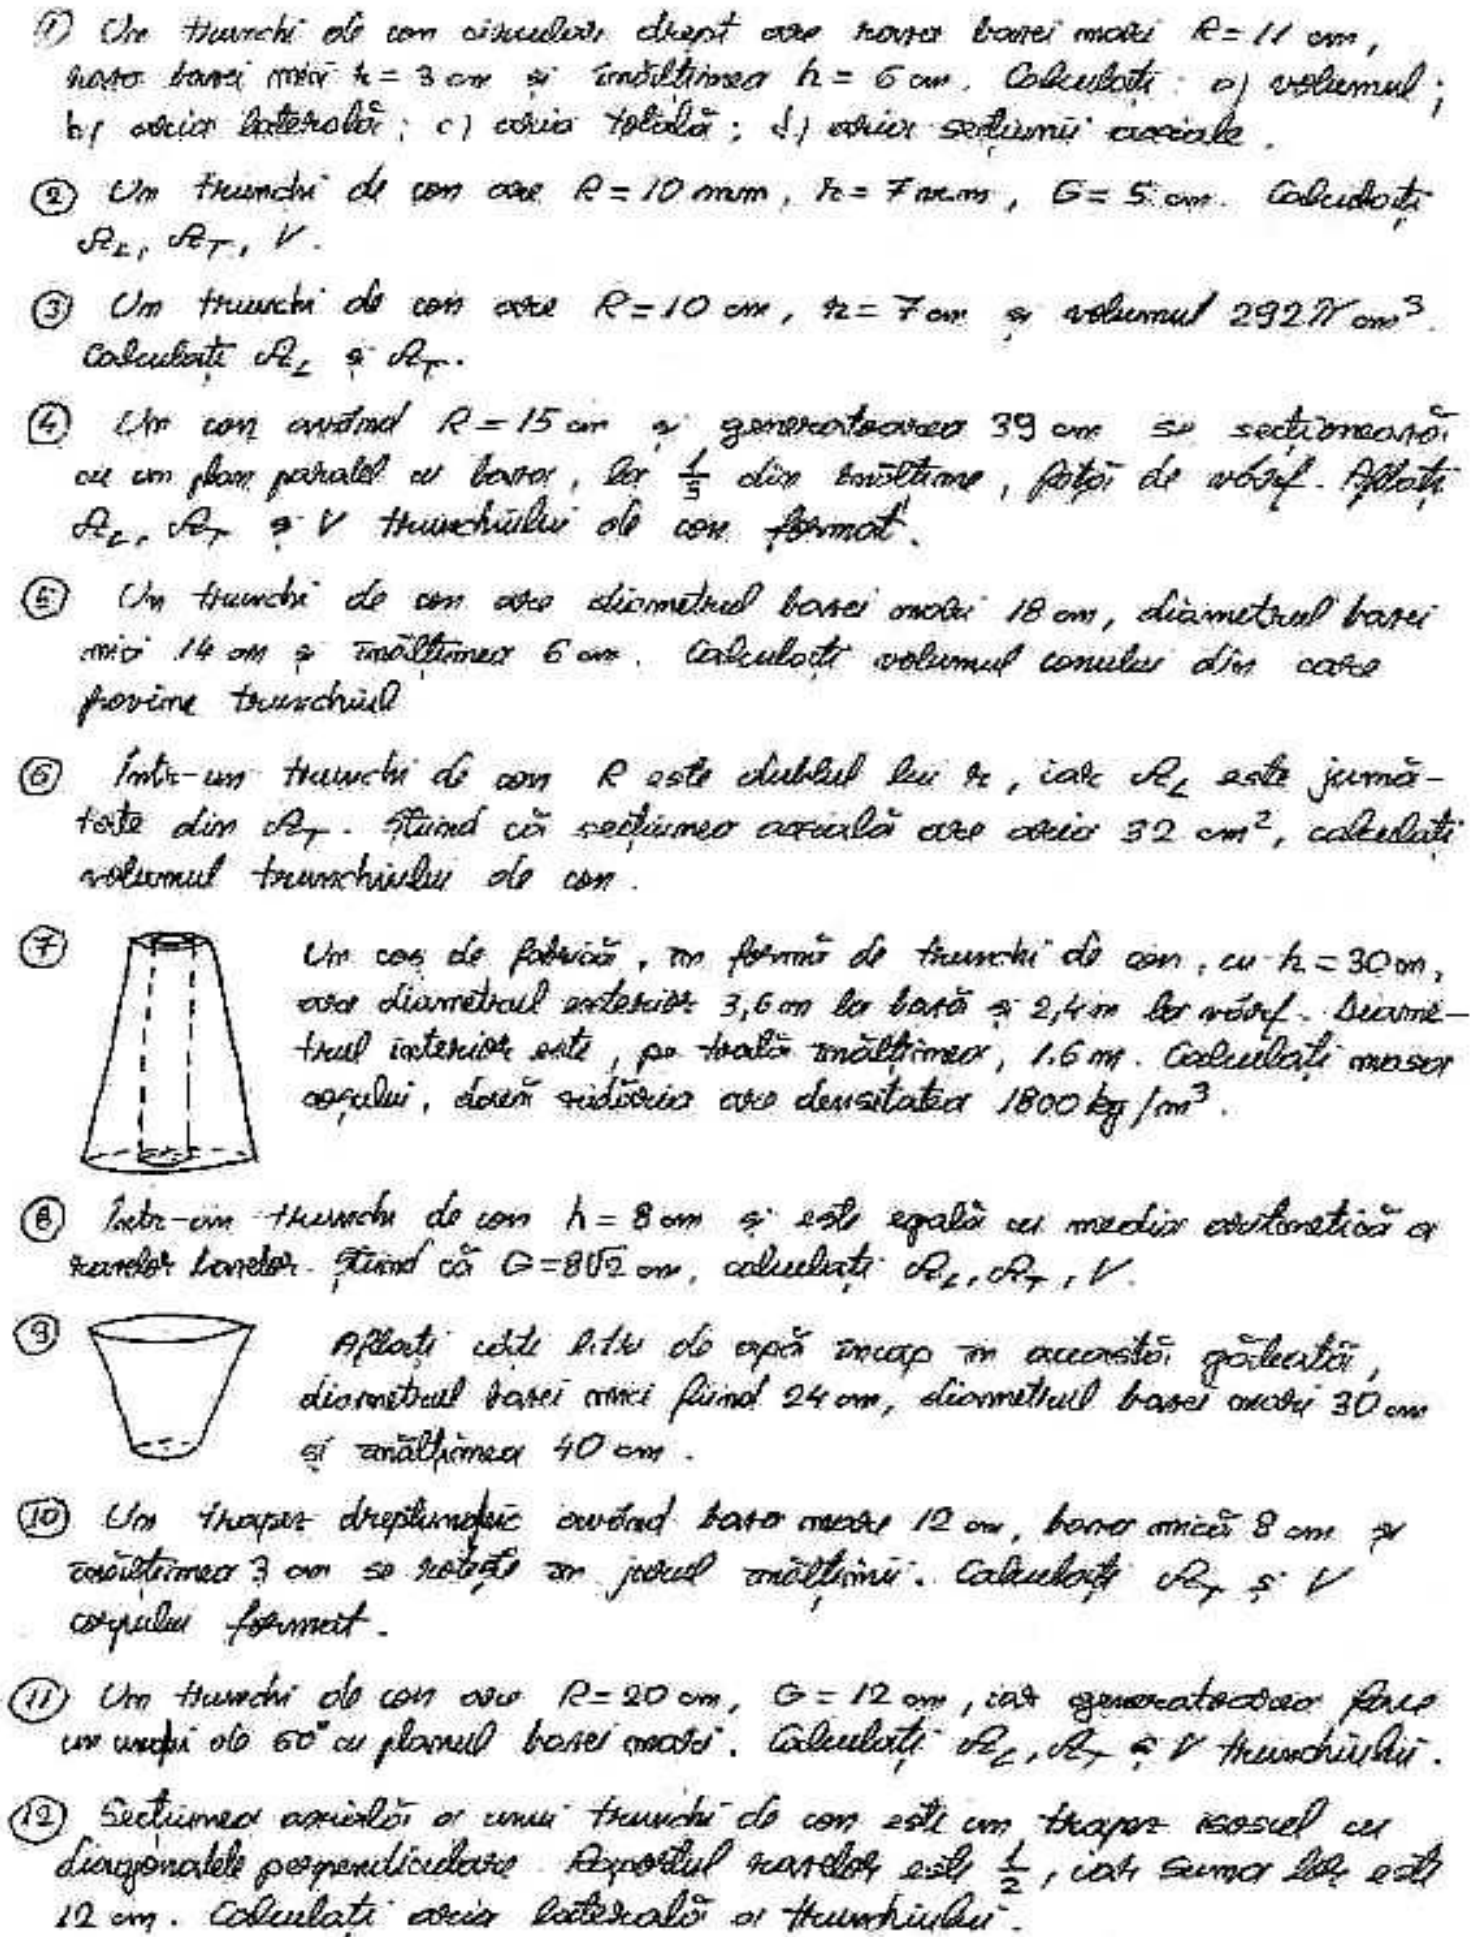 ① Un trunchi de con circular drept are raza bazei mari R = 11 cm,
raza bazei mici r = 3 cm și înălțimea h = 6 cm. Calculați: a) volumul;
b) aria laterală; c) aria totală; d) aria secțiunii axiale.
② Un trunchi de con are R = 10 mm, r = 7 mm, G = 5 cm. Calculați
A_L, A_T, V.
③ Un trunchi de con are R = 10 cm, r = 7 cm și volumul 292π cm³.
Calculați A_L și A_T.
④ Un con având R = 15 cm și generatoarea 39 cm se secționează
cu un plan paralel cu baza, la 1/3 din înălțime, față de vârf. Aflați
A_L, A_T și V trunchiului de con format.
⑤ Un trunchi de con are diametrul bazei mari 18 cm, diametrul bazei
mici 14 cm și înălțimea 6 cm. Calculați volumul conului din care
provine trunchiul
⑥ Într-un trunchi de con R este dublul lui r, iar A_L este jumă-
tate din A_T. Știind că secțiunea axială are aria 32 cm², calculați
volumul trunchiului de con.
⑦ Un coș de fabrică, în formă de trunchi de con, cu h = 30 m,
are diametrul exterior 3,6 m la bază și 2,4 m la vârf. Diame-
trul interior este, pe toată înălțimea, 1.6 m. Calculați masa
coșului, dacă zidăria are densitatea 1800 kg/m³.
⑧ Într-un trunchi de con h = 8 cm și este egală cu media aritmetică a
razelor bazelor. Știind că G = 8√2 cm, calculați A_L, A_T, V.
⑨ Aflați câți litri de apă încap în această găleată,
diametrul bazei mici fiind 24 cm, diametrul bazei mari 30 cm
și înălțimea 40 cm.
⑩ Un trapez dreptunghic având baza mare 12 cm, baza mică 8 cm și
înălțimea 3 cm se rotește în jurul înălțimii. Calculați A_T și V
corpului format.
⑪ Un trunchi de con are R = 20 cm, G = 12 cm, iar generatoarea face
un unghi de 60° cu planul bazei mari. Calculați A_L, A_T și V trunchiului.
⑫ Secțiunea axială a unui trunchi de con este un trapez isoscel cu
diagonalele perpendiculare. Raportul razelor este 1/2, iar suma lor este
12 cm. Calculați aria laterală a trunchiului.